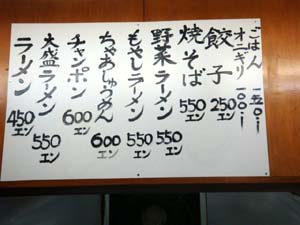 ごはん 一五〇円
オニギリ 一〇〇円
餃子 250エン
焼そば 550エン
野菜ラーメン 550エン
もやしラーメン 550エン
ちゃあしゅうめん 600エン
チャンポン 600エン
大盛ラーメン 550エン
ラーメン 450エン